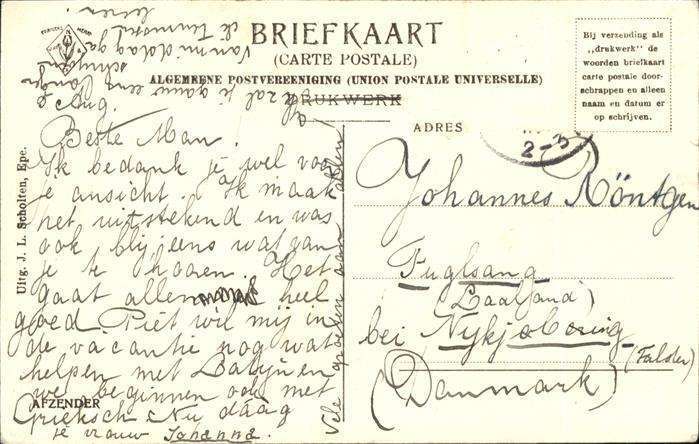 BRIEFKAART
(CARTE POSTALE)
ALGEMEENE POSTVEREENIGING (UNION POSTALE UNIVERSELLE)
DRUKWERK
Bij verzending als
„drukwerk” de
woorden briefkaart
carte postale door-
schrappen en alleen
naam en datum er
op schrijven.
ADRES
2-3
Johannes Röntgen
Fuglsang
Laaland)
bei Nykjobing
(Falster)
(Danmark)
Uitg. J. L. Scholten, Epe.
Aug.
Beste Man.
Ik bedank je wel voor
je ansicht. Ik maak
het uitstekend en was
ook blij iens wat van
je te hooren. Het
gaat allemaal heel
goed Piet wil mij in
de vacantie nog wat
helpen met Latijn en
we beginnen ook met
Grieksch Nu daag
je vrouw Johanna.
AFZENDER
Vele groeten aan allen
Ik zal je gauw eens langer
schrijven
van middag ga
ik
leeren